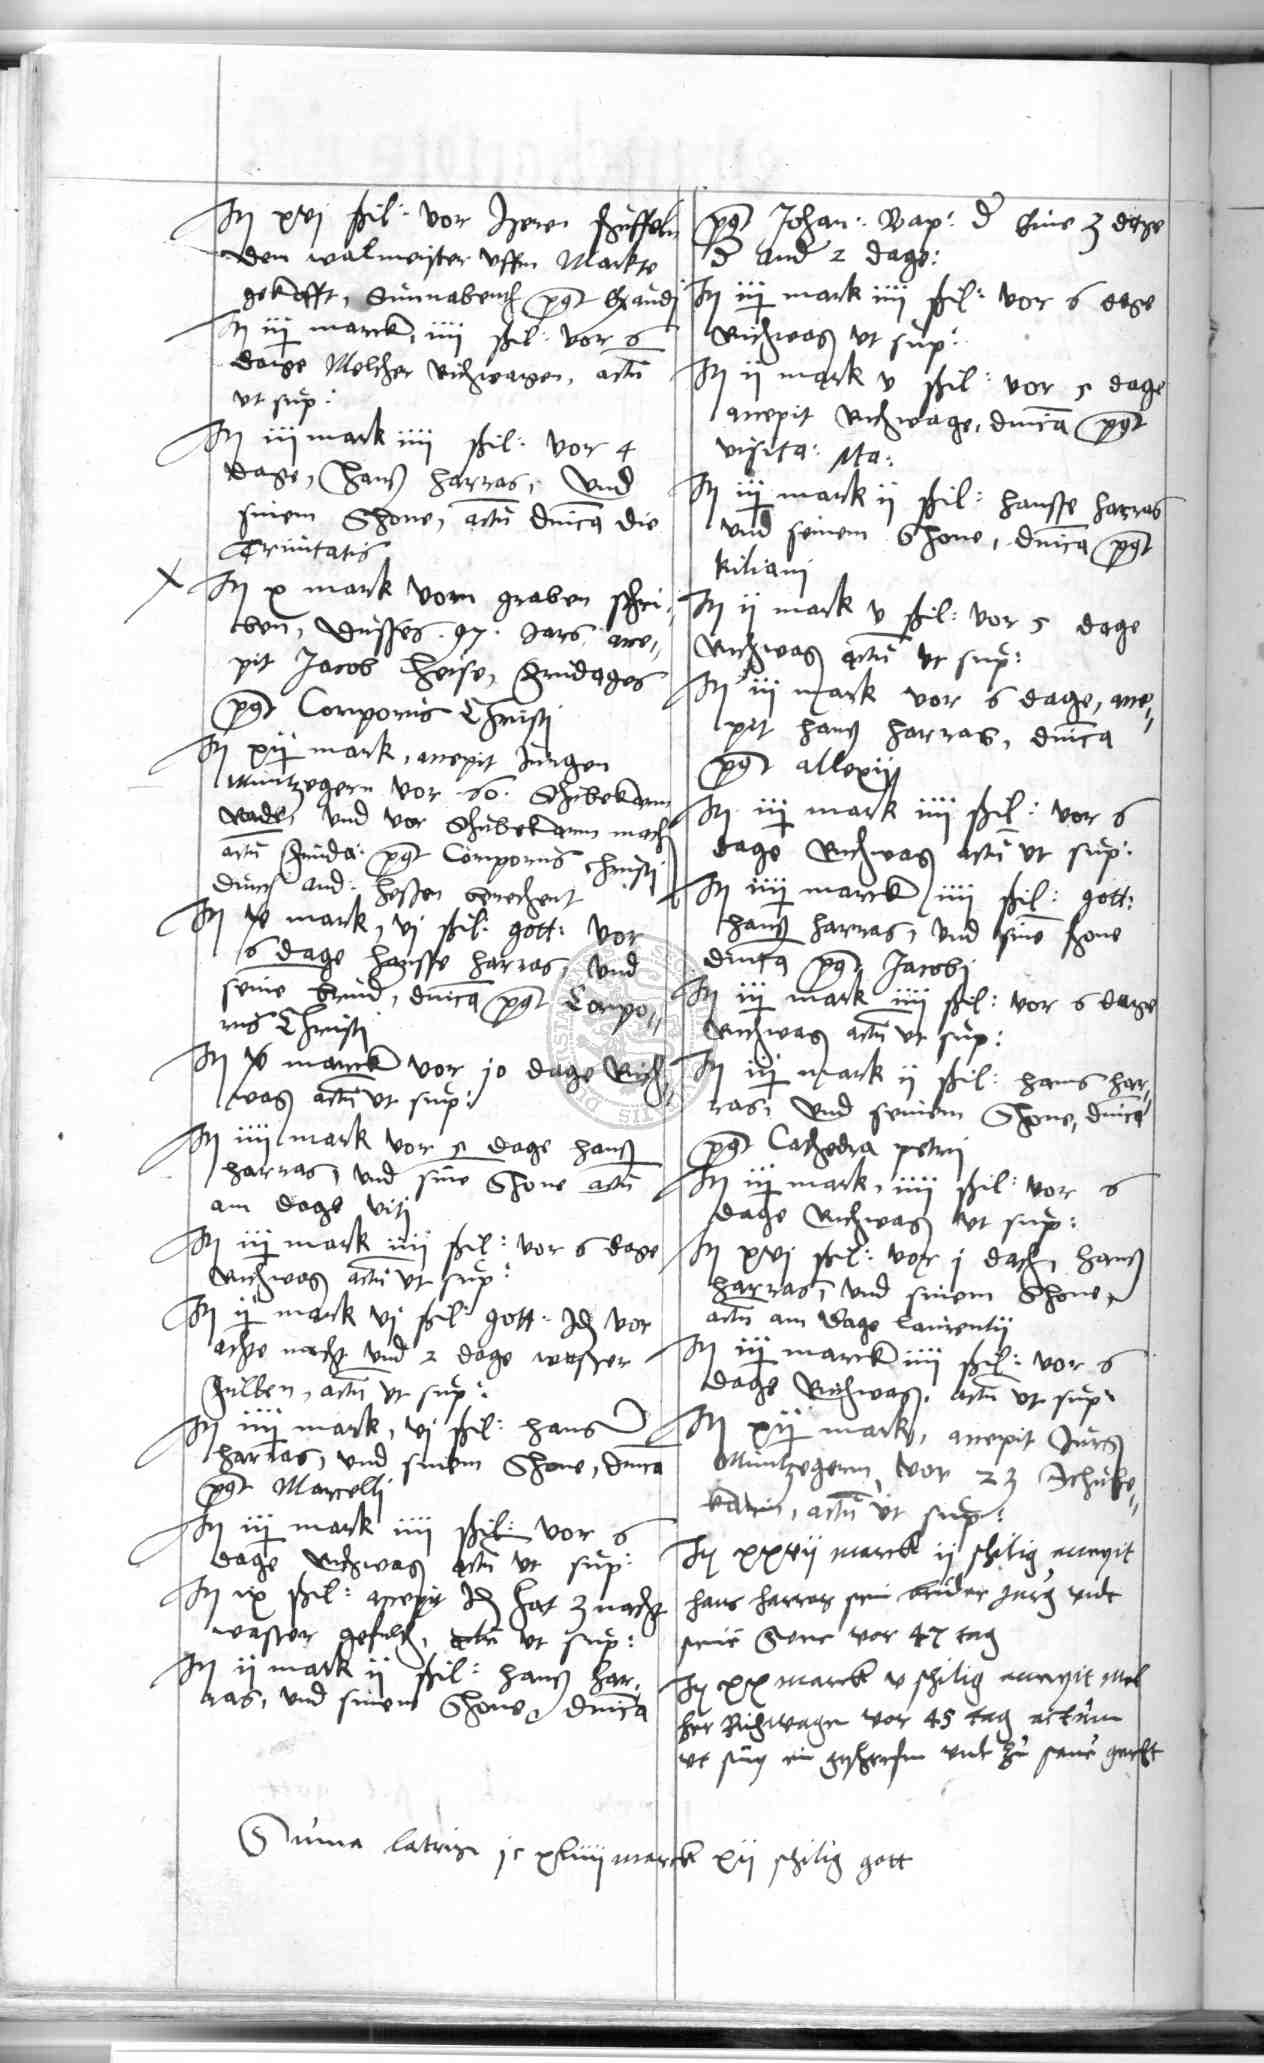 It xvj ßil: vor Iseren schuffeln
den walmeister vffm Markte
gekofft, Sunnabenth post Exaudj
It iij marck, iiij ßil: vor 6
dage Melcher Richwagen, actu
vt sup:
It iij mark iiij ßil: vor 4
dage, Hans harras, vnd
sinem Shone, actu dnica die
Trinitatis
It x mark vorn graben schri-
ben, dusses .97. Jars acce-
pit Jacob heise, fridages
post Corporis Christj
It xij mark, accepit Jurgen
Muntzegern vor .60. Schubekarn
Rade, vnd vor Schubekarn mach
actu frida: post Corporis Christj
durch And: hessen berechent
It v mark, vj ßil: gott: vor
6 dage hansse harras, vnd
seine kind, dnica post Corpo-
ris Christj
It v marck vor 10 dage Rich-
wag actu vt sup:
It iiij mark vor 5 dage hans
harras, vnd sine Shone actu
am dage vitj
It iij mark iiij ßil: vor 6 dage
Richwag actu vt sup:
It ij mark vj ßil: gott: Id vor
achte nacht vnd 2 dage wasser
fullen, actu vt sup:
It iiij mark, vj ßil: hans
harras, vnd sinem Shone, dnica
post Marcellj
It iij mark iiij ßil: vor 6
dage Richwag actu vt sup:
It ix ßil: accepit Id hat 3 nacht
wasser gefult, actu vt sup:
It ij mark ij ßil: hans har-
ras, vnd sinem Shone, dnica
post Johan: Bap: d eine 3 dage
d and 2 dage:
It iij mark iiij ßil: vor 6 dage
Richwag vt sup:
It ij mark v ßil: vor 5 dage
accepit Richwage, dnica post
visita: Ma:
It iij mark ij ßil: hansse harras
vnd seinem Shone, dnica post
kilianj
It ij mark v ßil: vor 5 dage
Richwag actu vt sup:
It iij mark vor 6 dage, acce-
pit hans harras, dnica
post allexij
It iij mark iiij ßil: vor 6
dage Richwag actu vt sup:
It iiij marck iiij ßil: gott:
hans harras, vnd sine shone
dnica post Jacobj
It iij mark iiij ßil: vor 6 dage
Richwag actu vt sup:
It iij mark ij ßil: hans har-
ras, vnd seinem Shone, dnica
post Cathedra petrj
It iij mark, iiij ßil: vor 6
dage Richwag vt sup:
It xvj ßil: vor j dach, hans
harras, vnd sinem Shone,
actu am dage laurentii
It iij marck iiij ßil: vor 6
dage Richwag, actu vt sup:
It xij mark, accepit Jurg
Muntzegern, vor 23 Schube-
karn, actu vt sup:
It xxvij marck ij schilig accepit
hans harras sin bruder Jurg vnd
seine Sone vor 47 tag
It xx marck v schilig accepit Mel
her Richwagn vor 45 tag actum
vt sup vnd zu
Suma lateris jc xliiij marck xij schilig gott